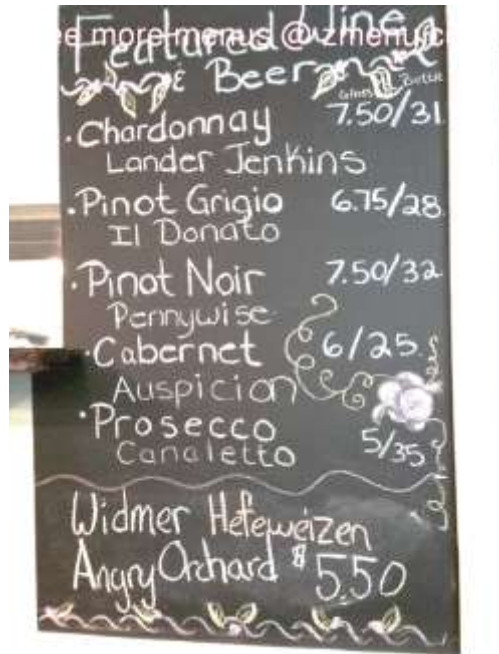 e more menus @ zmenu.c
Featured Wine
& Beer
Glass Bottle
• Chardonnay 7.50/31
Lander Jenkins
• Pinot Grigio 6.75/28
Il Donato
• Pinot Noir 7.50/32
Pennywise
• Cabernet 6/25
Auspicion
• Prosecco 5/35
Canaletto
Widmer Hefeweizen
Angry Orchard $5.50